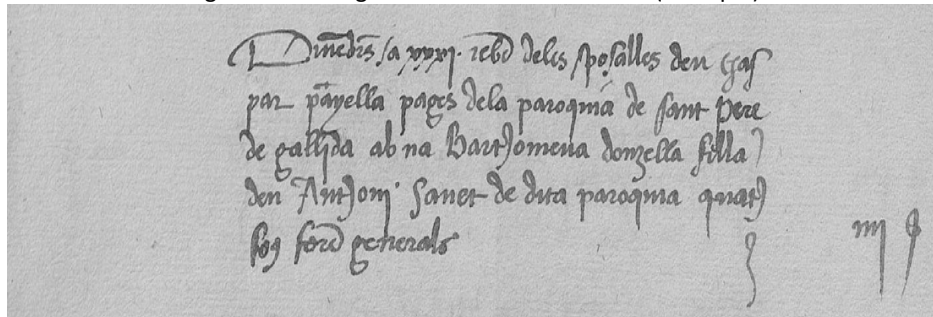 Dimecres a xxxj rebe deles sposalles den Gas
par pages dela paroquia de sant Pere
de gallifa ab na Barthomeua donzella filla
den Anthoni Sanet de dita paroquia quath
generals
iiij